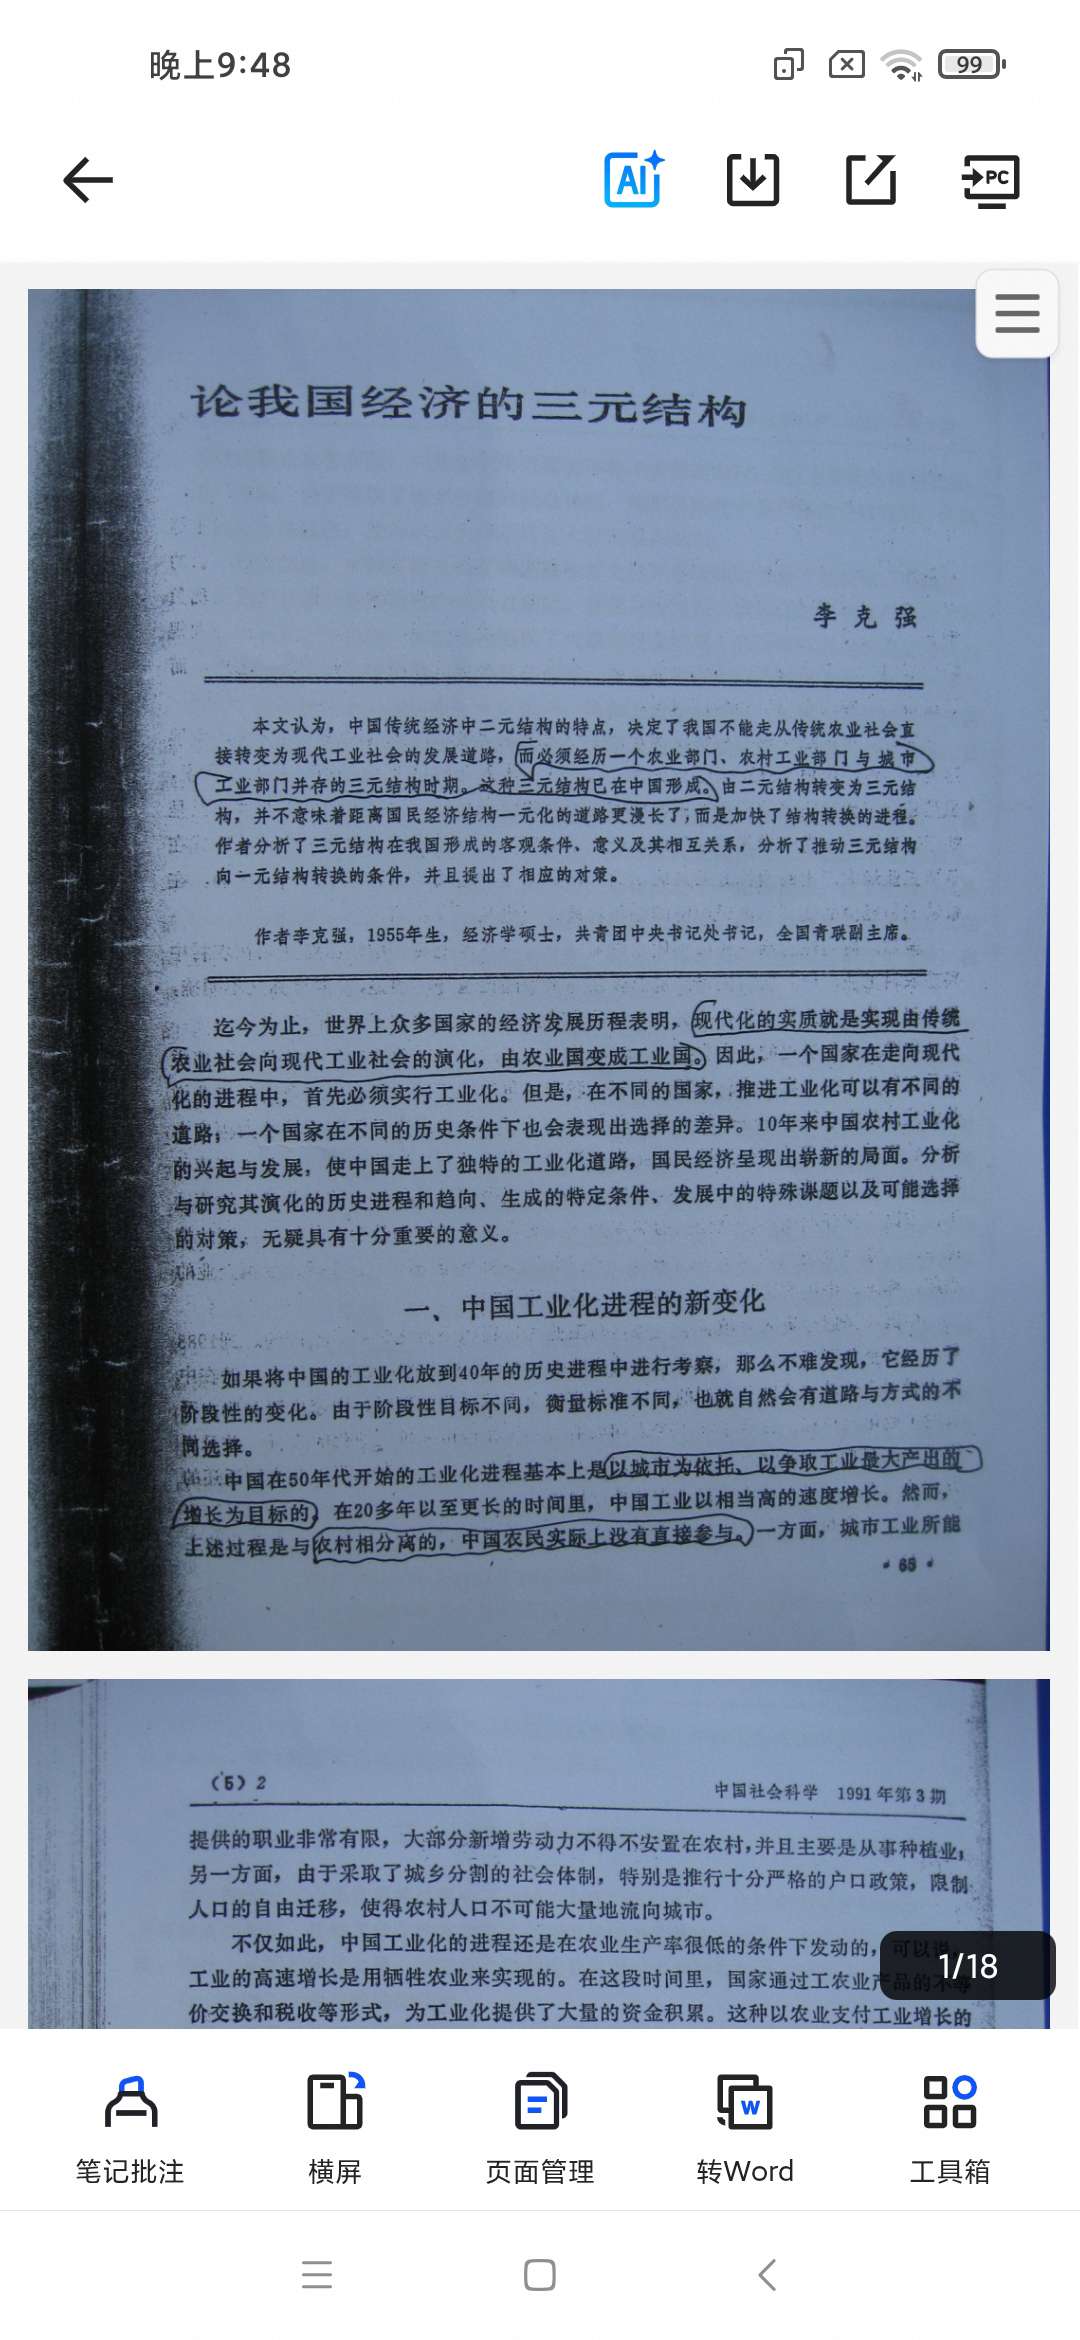 晚上9:48
99
AI
PC
论我国经济的三元结构
李克强
本文认为，中国传统经济中二元结构的特点，决定了我国不能走从传统农业社会直
接转变为现代工业社会的发展道路，而必须经历一个农业部门、农村工业部门与城市
工业部门并存的三元结构时期。这种三元结构已在中国形成。由二元结构转变为三元结
构，并不意味着距离国民经济结构一元化的道路更漫长了，而是加快了结构转换的进程。
作者分析了三元结构在我国形成的客观条件、意义及其相互关系，分析了推动三元结构
向一元结构转换的条件，并且提出了相应的对策。
作者李克强，1955年生，经济学硕士，共青团中央书记处书记，全国青联副主席。
迄今为止，世界上众多国家的经济发展历程表明，现代化的实质就是实现由传统
农业社会向现代工业社会的演化，由农业国变成工业国。因此，一个国家在走向现代
化的进程中，首先必须实行工业化。但是，在不同的国家，推进工业化可以有不同的
道路；一个国家在不同的历史条件下也会表现出选择的差异。10年来中国农村工业化
的兴起与发展，使中国走上了独特的工业化道路，国民经济呈现出崭新的局面。分析
与研究其演化的历史进程和趋向、生成的特定条件、发展中的特殊课题以及可能选择
的对策，无疑具有十分重要的意义。
一、中国工业化进程的新变化
如果将中国的工业化放到40年的历史进程中进行考察，那么不难发现，它经历了
阶段性的变化。由于阶段性目标不同，衡量标准不同，也就自然会有道路与方式的不
同选择。
中国在50年代开始的工业化进程基本上是以城市为依托、以争取工业最大产出的
增长为目标的，在20多年以至更长的时间里，中国工业以相当高的速度增长。然而，
上述过程是与农村相分离的，中国农民实际上没有直接参与。一方面，城市工业所能
• 65 •
（5）2
中国社会科学 1991年第3期
提供的职业非常有限，大部分新增劳动力不得不安置在农村，并且主要是从事种植业；
另一方面，由于采取了城乡分割的社会体制，特别是推行十分严格的户口政策，限制
人口的自由迁移，使得农村人口不可能大量地流向城市。
不仅如此，中国工业化的进程还是在农业生产率很低的条件下发动的，可以说，
工业的高速增长是用牺牲农业来实现的。在这段时间里，国家通过工农业产品的不等
价交换和税收等形式，为工业化提供了大量的资金积累。这种以农业支付工业增长的
1/18
W
笔记批注
横屏
页面管理
转Word
工具箱